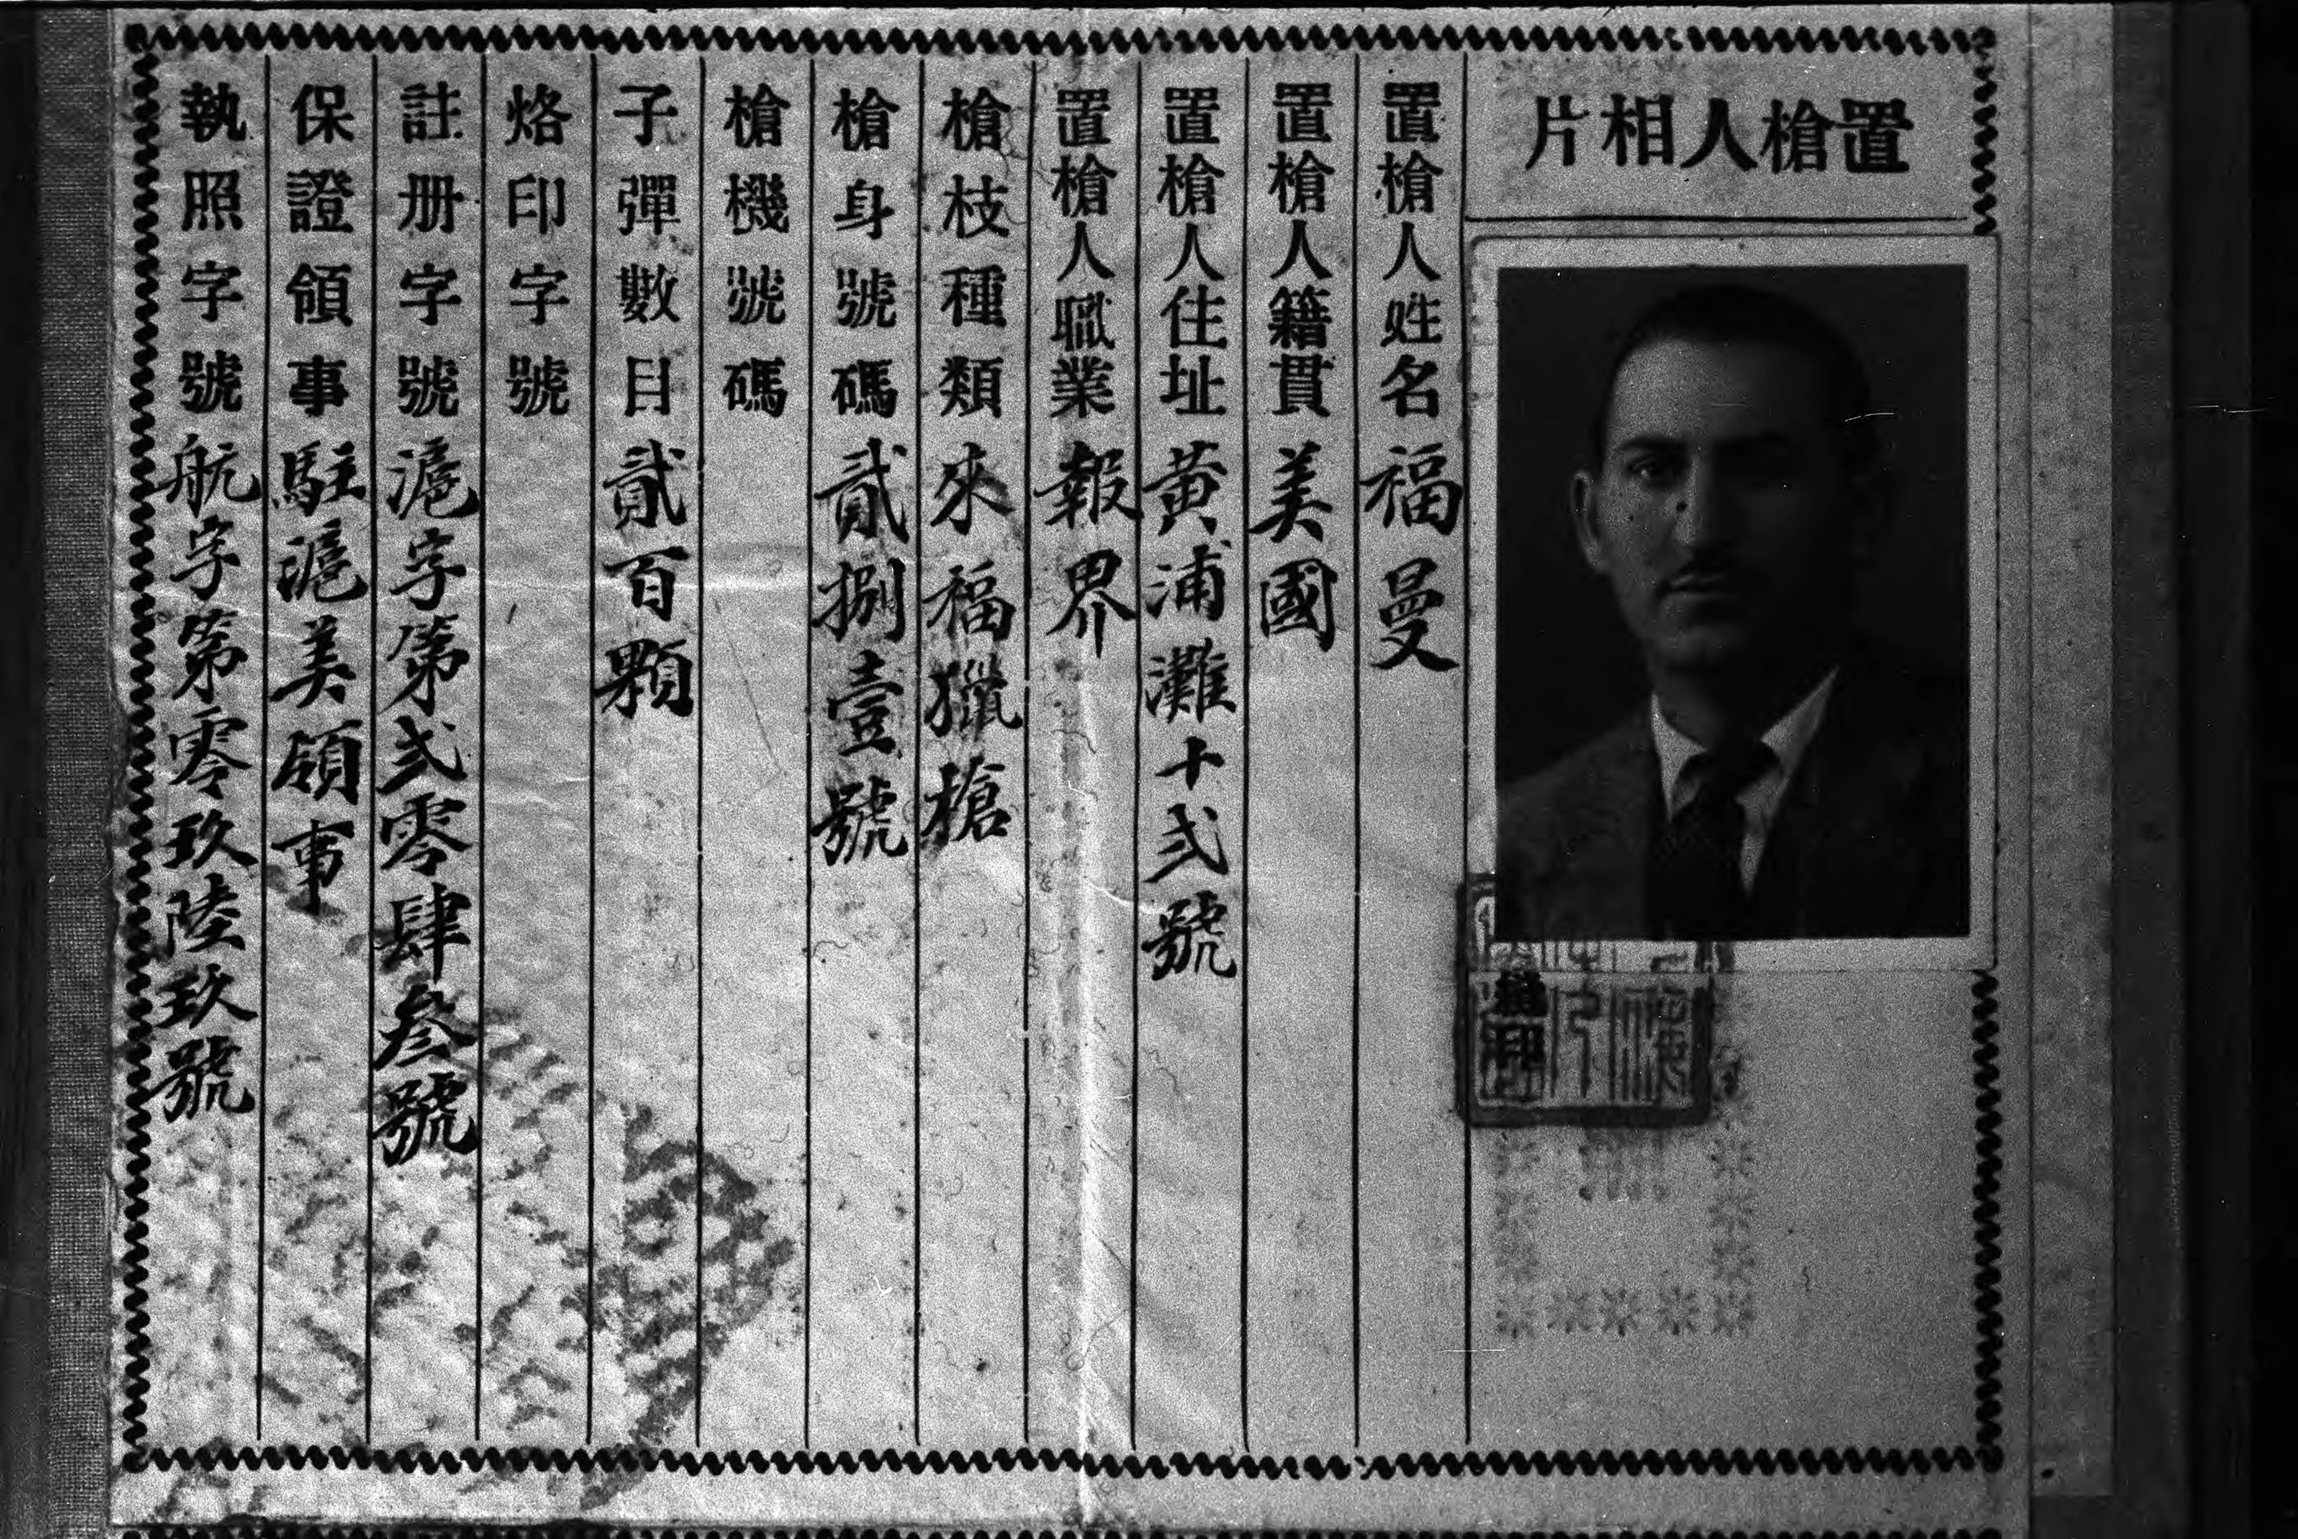 置槍人相片
置槍人姓名福曼
置槍人籍貫美國
置槍人住址黄浦灘十弍號
置槍人職業報界
槍枝種類來福獵槍
槍身號碼貳捌壹號
槍機號碼
子彈數目貳百顆
烙印字號
註册字號滬字第弍零肆叁號
保證領事駐滬美領事
執照字號航字第零玖陸玖號